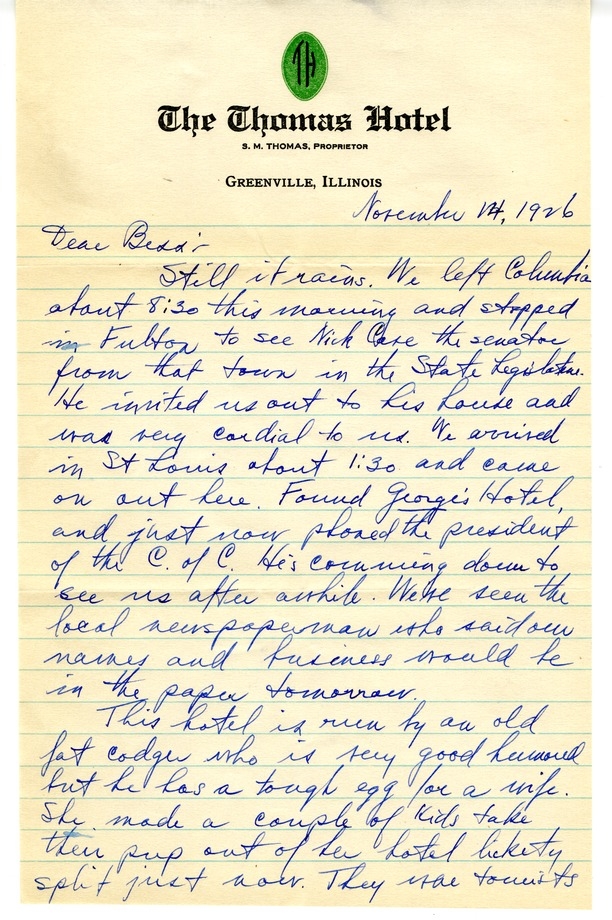 TH
The Thomas Hotel
S. M. THOMAS, PROPRIETOR
GREENVILLE, ILLINOIS
November 14, 1926
Dear Bess:-
Still it rains. We left Columbia
about 8:30 this morning and stopped
in Fulton to see Nick Cave the senator
from that town in the State Legislature.
He invited us out to his house and
was very cordial to us. We arrived
in St Louis about 1:30 and came
on out here. Found George's Hotel,
and just now phoned the president
of the C. of C. He's comming down to
see us after awhile. We've seen the
local newspaperman who said our
names and business would be
in the paper tomorrow.
This hotel is run by an old
fat codger who is very good humored
but he has a tough egg for a wife.
She made a couple of kids take
their pup out of her hotel lickety
split just now. They were tourists